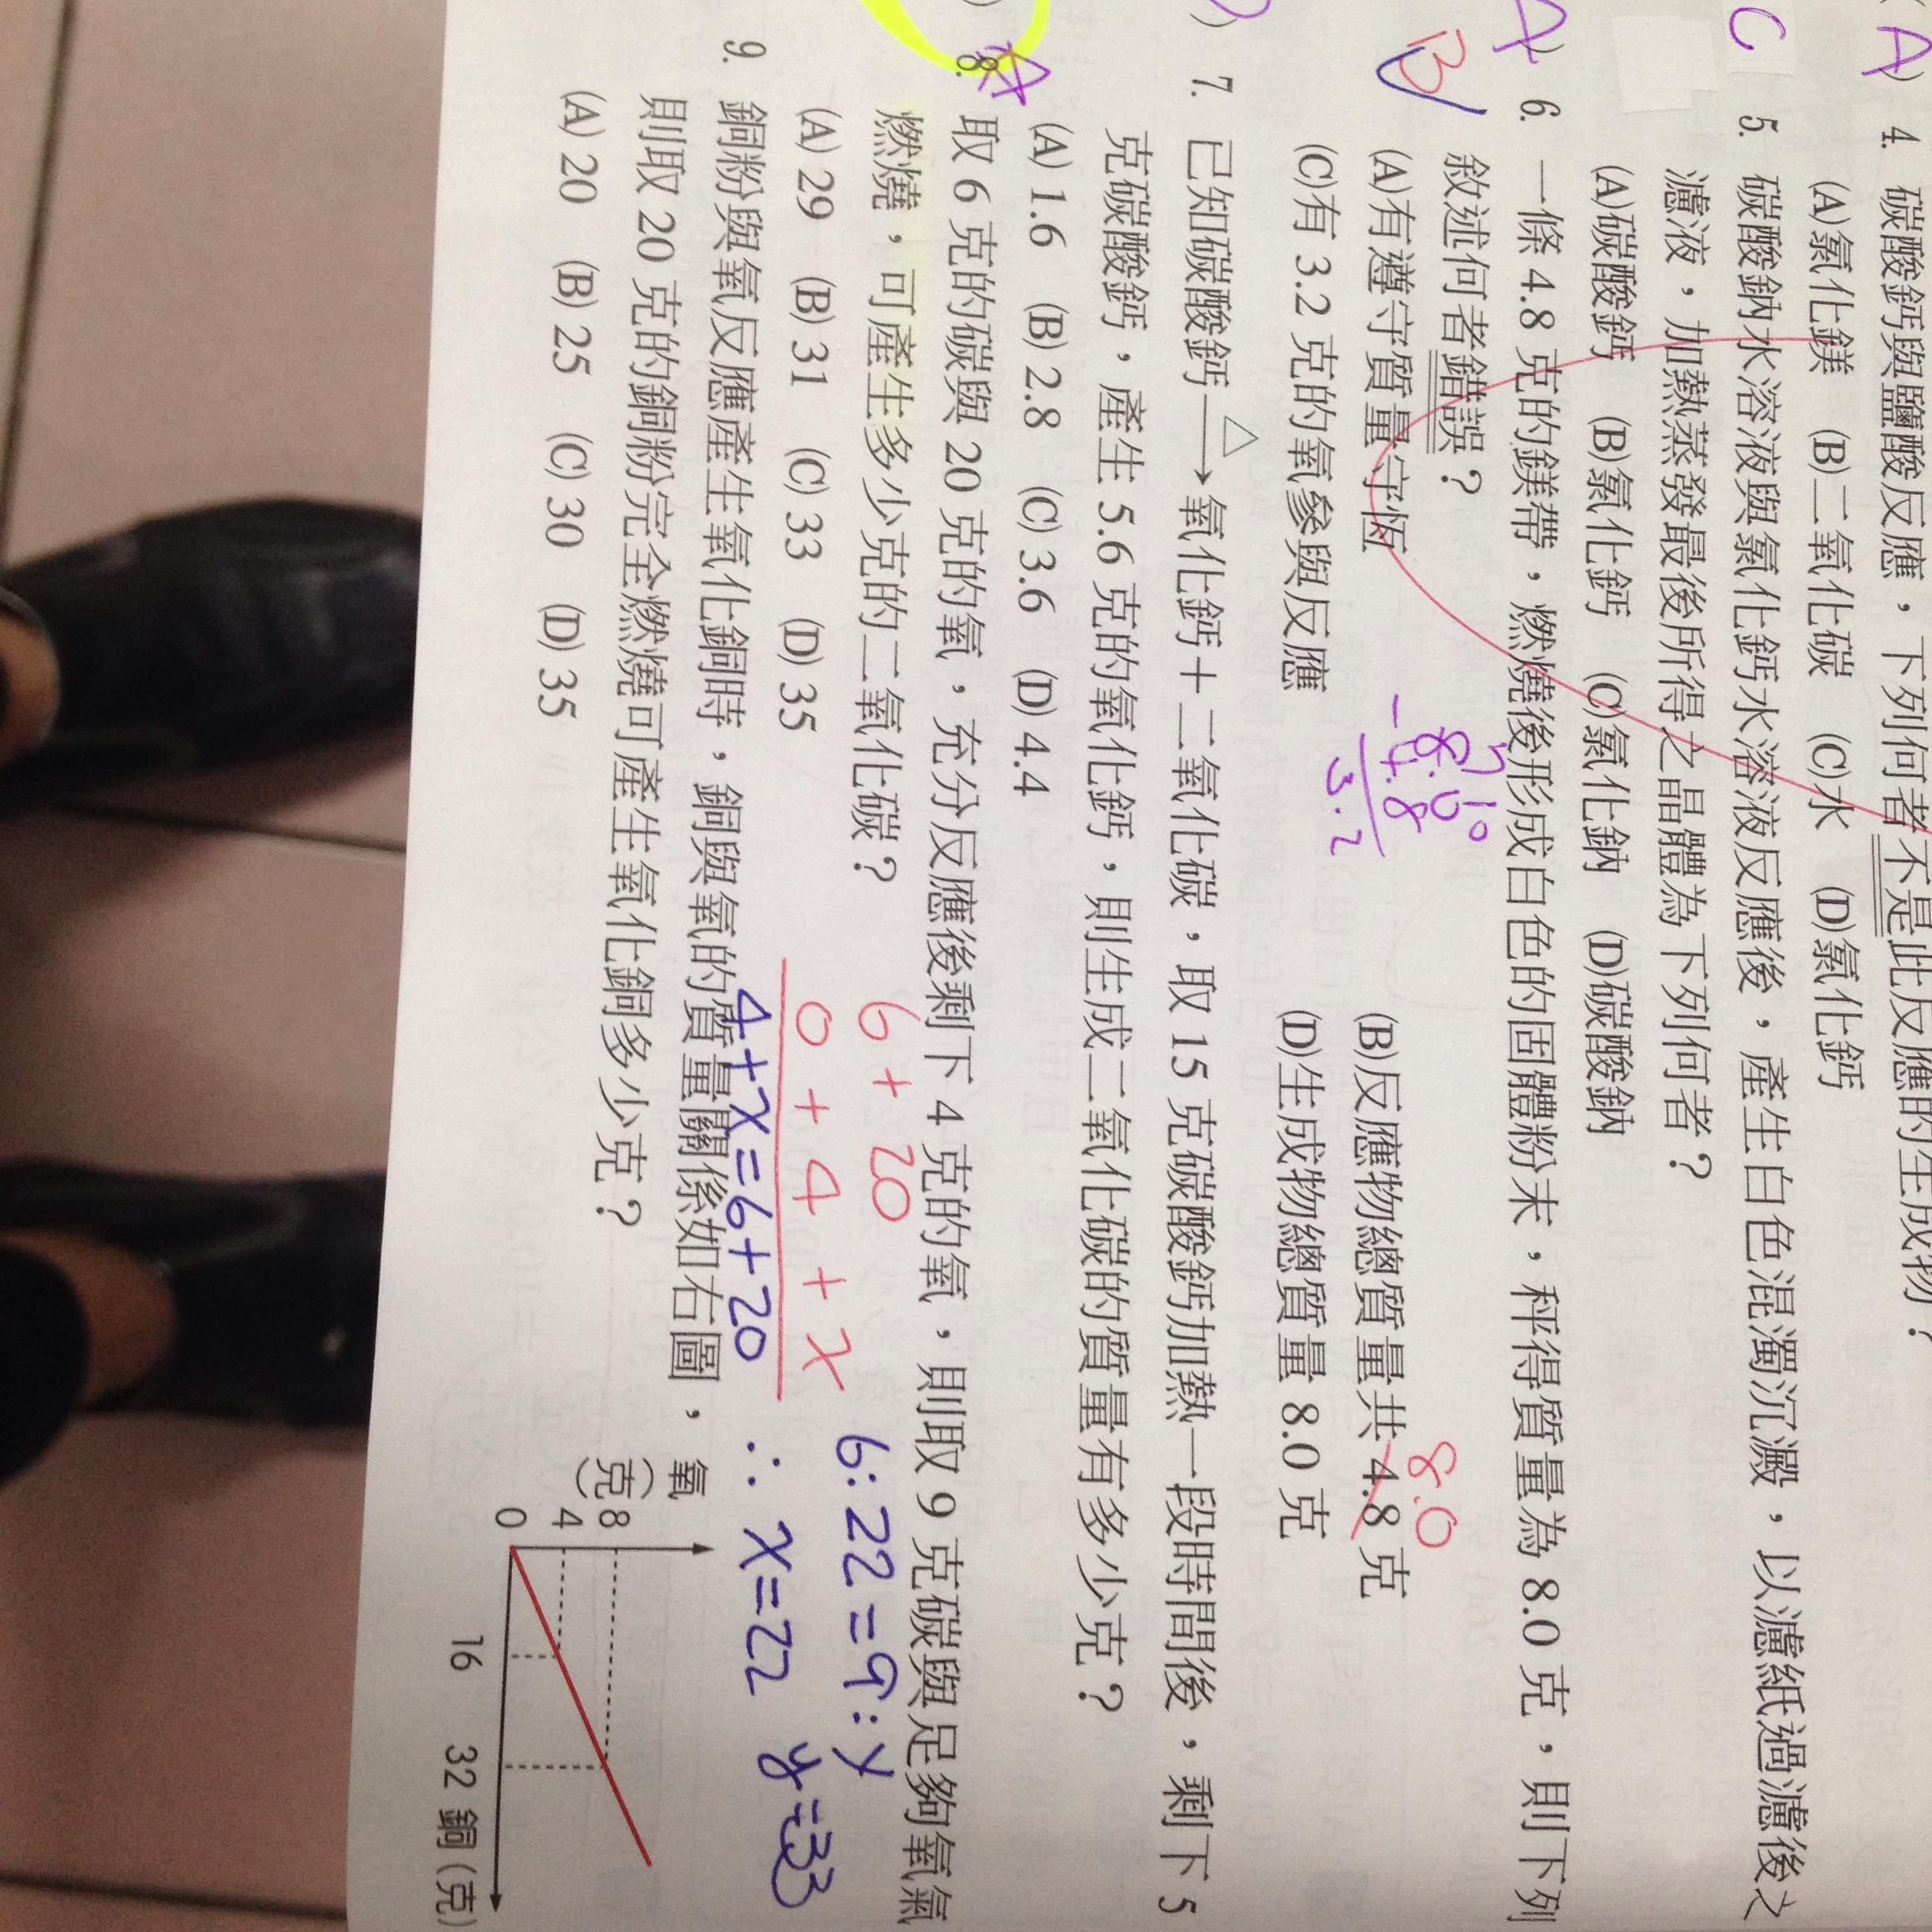 A) 4. 碳酸鈣與鹽酸反應，下列何者不是此反應的生成物？
(A)氯化鎂 (B)二氧化碳 (C)水 (D)氯化鈣
C 5. 碳酸鈉水溶液與氯化鈣水溶液反應後，產生白色混濁沉澱，以濾紙過濾後之
濾液，加熱蒸發最後所得之晶體為下列何者？
(A)碳酸鈣 (B)氯化鈣 (C)氯化鈉 (D)碳酸鈉
6. 一條 4.8 克的鎂帶，燃燒後形成白色的固體粉末，秤得質量為 8.0 克，則下列
B 敘述何者錯誤？
8.0
8.0
(A)有遵守質量守恆 - 4.8 (B)反應物總質量共 4.8 克
3.2
(C)有 3.2 克的氧參與反應 (D)生成物總質量 8.0 克
) 7. 已知碳酸鈣 △→ 氧化鈣＋二氧化碳，取 15 克碳酸鈣加熱一段時間後，剩下 5
克碳酸鈣，產生 5.6 克的氧化鈣，則生成二氧化碳的質量有多少克？
(A) 1.6 (B) 2.8 (C) 3.6 (D) 4.4
) 8. 取 6 克的碳與 20 克的氧，充分反應後剩下 4 克的氧，則取 9 克碳與足夠氧氣
燃燒，可產生多少克的二氧化碳？ 6 + 20 6:22=9:y
(A) 29 (B) 31 (C) 33 (D) 35 0 + 4 + x
4+x=6+20 ∴ x=22 y=33
9. 銅粉與氧反應產生氧化銅時，銅與氧的質量關係如右圖，
則取 20 克的銅粉完全燃燒可產生氧化銅多少克？
(A) 20 (B) 25 (C) 30 (D) 35
氧
(克)
8
4
0
16 32 銅(克)